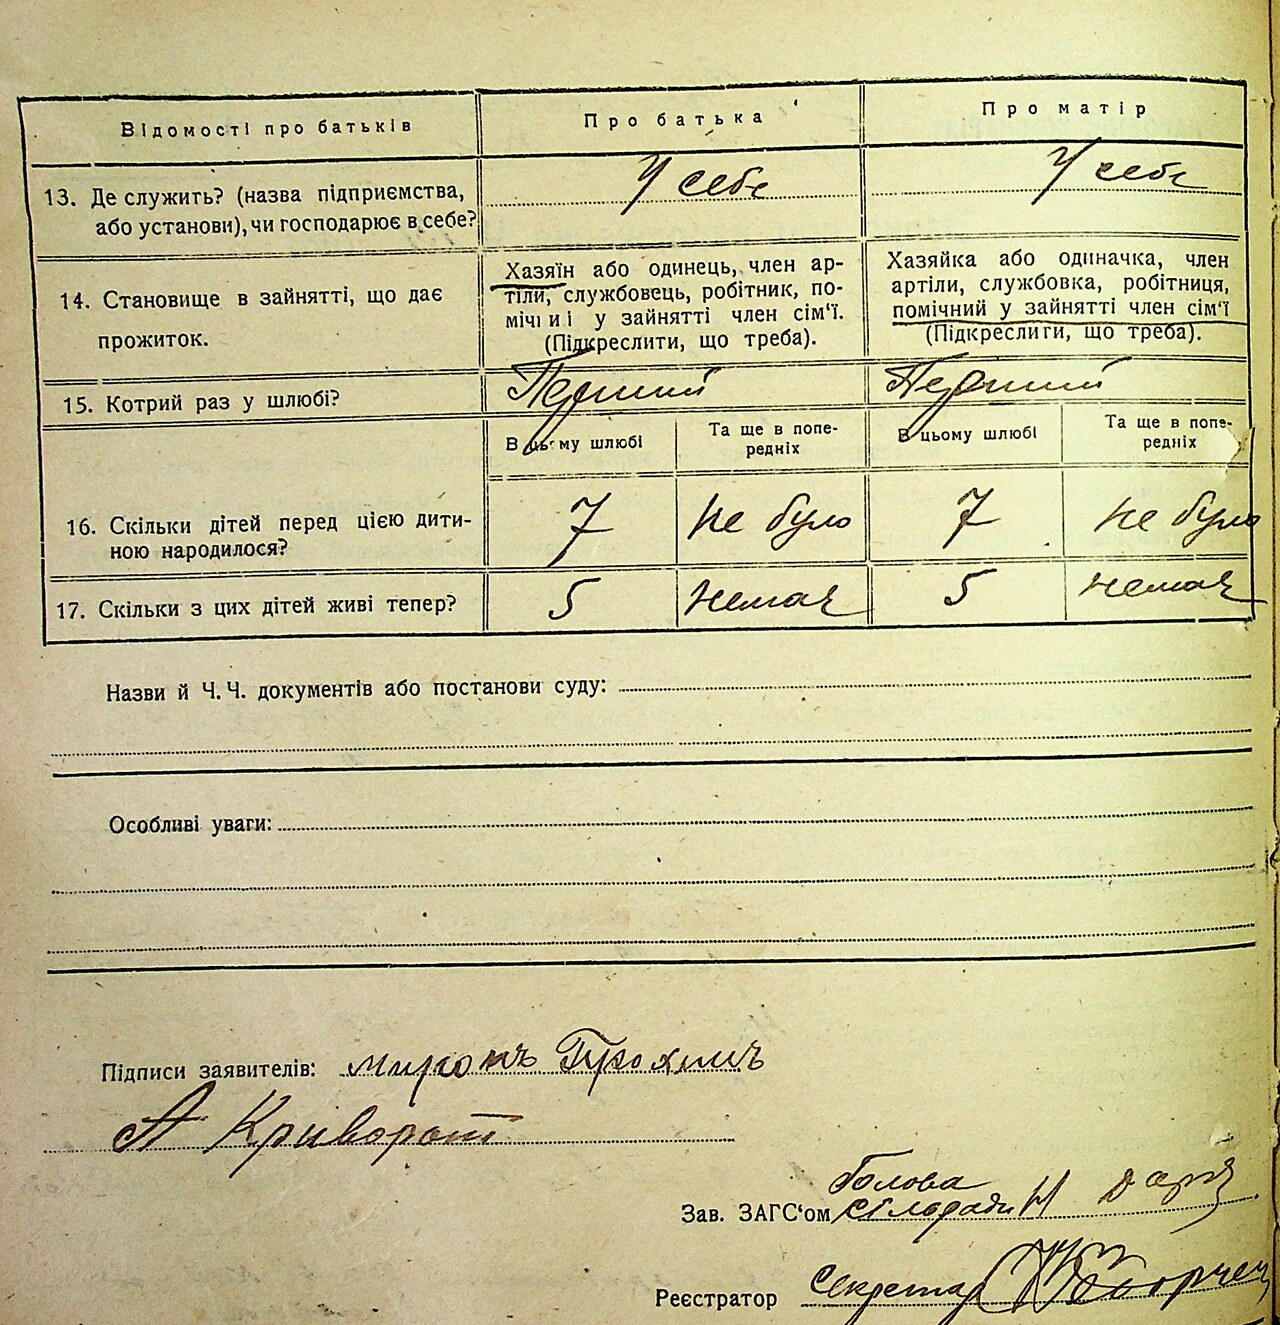 Відомості про батьків
Про батька
Про матір
13. Де служить? (назва підприємства,
або установи), чи господарює в себе?
У себе
У себе
14. Становище в зайнятті, що дає
прожиток.
Хазяїн або одинець, член ар-
тіли, службовець, робітник, по-
мічниі у зайнятті член сім'ї.
(Підкреслити, що треба).
Хазяйка або одиначка, член
артіли, службовка, робітниця,
помічний у зайнятті член сім'ї
(Підкреслити, що треба).
15. Котрий раз у шлюбі?
Перший
Перший
В цьому шлюбі
Та ще в попе-
редніх
В цьому шлюбі
Та ще в попе-
редніх
16. Скільки дітей перед цією дити-
ною народилося?
7
Не було
7
Не було
17. Скільки з цих дітей живі тепер?
5
Немає
5
Немає
Назви й Ч. Ч. документів або постанови суду:
Особливі уваги:
Підписи заявителів: миронъ Трохимъ
А Криворот
Голова
Зав. ЗАГС'ом сілради Н
Реєстратор Секретар